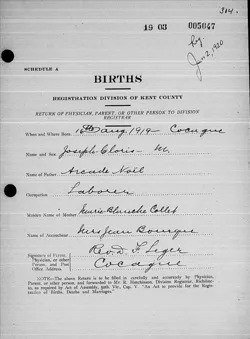 314.
19 03 005047
Reg
Jan. 2, 1920
SCHEDULE A
BIRTHS
REGISTRATION DIVISION OF KENT COUNTY
RETURN OF PHYSICIAN, PARENT, OR OTHER PERSON TO DIVISION
REGISTRAR
When and Where Born, 16th Aug 1919 - Cocagne
Name and Sex, Joseph Cloris - M.
Name of Father, Arcade Noël
Occupation Laborer
Maiden Name of Mother Marie Blanche Collet
Name of Accoucheur, Mrs Jean Bourque
Signature of Parent,
Physician, or other
Person, and Post
Office Address,
Rev. D. F. Leger
Cocagne
NOTE—The above Return is to be filled in carefully and accurately by Physician,
Parent, or other person, and forwarded to Mr. R. Hutchinson, Division Registrar, Richibucto,
as required by Act of Assembly, 50th Vic., Cap. V. "An Act to provide for the Registration
of Births, Deaths and Marriages."